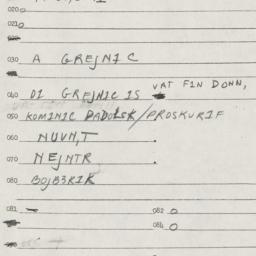 020 o
021 o
030 A GREJNIC
040 DI GREJNIC IS VAT FIN DONN,
050 KOMINIC PADOLSK/PROSKURIF
060 NUVN,T .
070 NEJNTR .
080 BOJBERIK
081 — 082 o
084 o